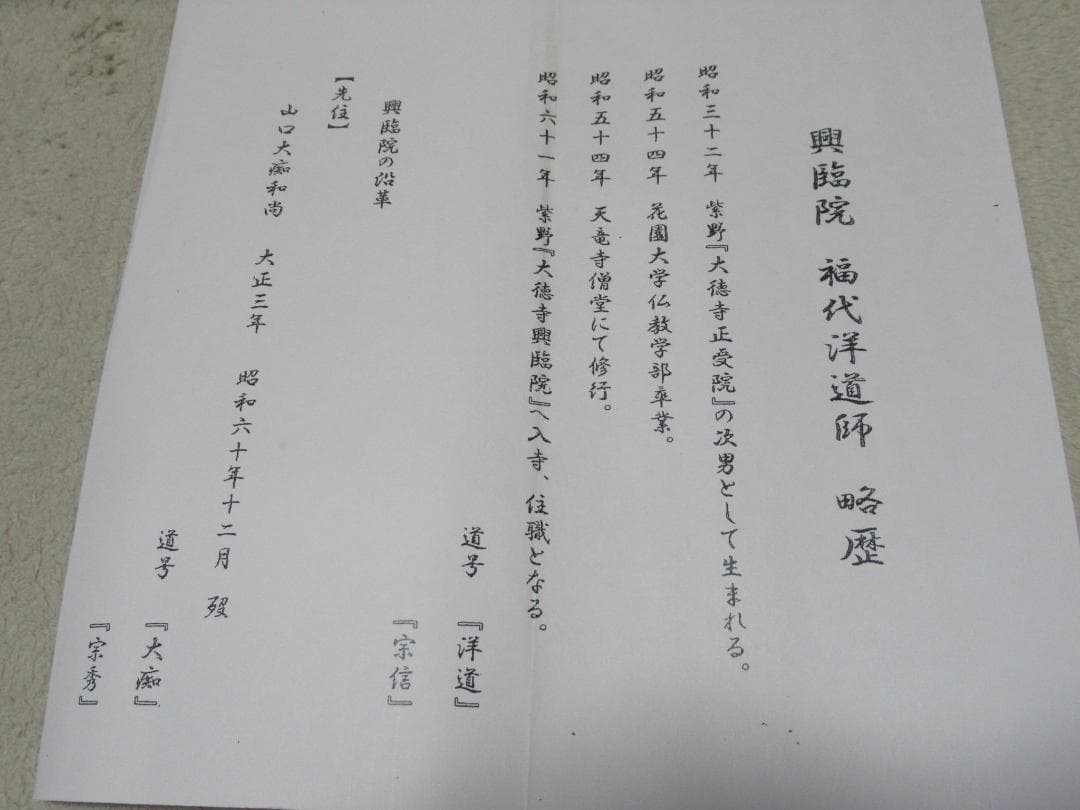 興臨院 福代洋道師 略歴
昭和三十二年 紫野『大徳寺正受院』の次男として生まれる。
昭和五十四年 花園大学仏教学部卒業。
昭和五十四年 天竜寺僧堂にて修行。
昭和六十一年 紫野『大徳寺興臨院』へ入寺、住職となる。
道号 『洋道』
『宗信』
興臨院の沿革
【先住】
山口大痴和尚 大正三年 昭和六十年十二月 歿
道号 『大痴』
『宗秀』